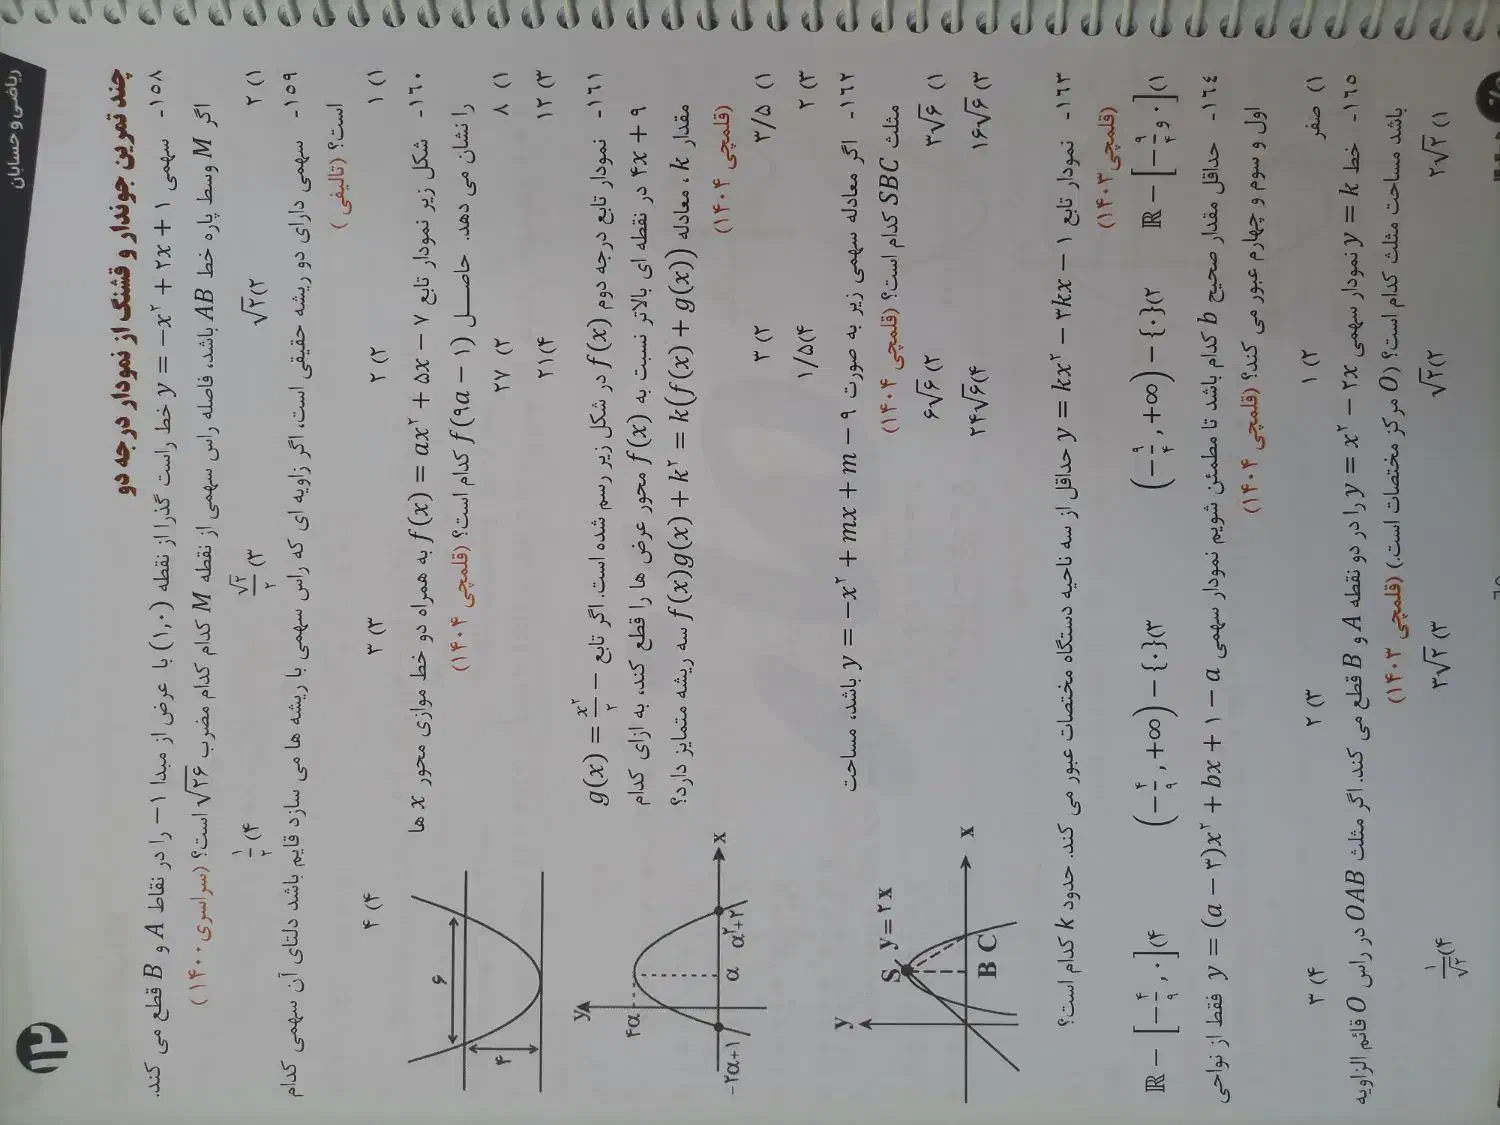 ریاضی و حسابان
چند تمرین جوندار و قشنگ از نمودار درجه دو
۱۵۸- سهمی y = −x² + ۲x + ۱ خط راست گذرا از نقطه (۱,۰) با عرض از مبدا ۱− را در نقاط A و B قطع می کند.
اگر M وسط پاره خط AB باشد، فاصله راس سهمی از نقطه M کدام مضرب √۲۶ است؟ (سراسری ۱۴۰۰)
۱) ۲ ۲) √۲ ۳) √۲/۲ ۴) ۱/۲
۱۵۹- سهمی دارای دو ریشه حقیقی است، اگر زاویه ای که راس سهمی با ریشه ها می سازد قایم باشد دلتای آن سهمی کدام
است؟ (تالیفی)
۱) ۱ ۲) ۲ ۳) ۳ ۴) ۴
۱۶۰- شکل زیر نمودار تابع f(x) = ax² + ۵x − ۷ به همراه دو خط موازی محور x ها
را نشان می دهد. حاصل f(۹a − ۱) کدام است؟ (قلمچی ۱۴۰۴)
۱) ۸ ۲) ۲۷
۳) ۱۲ ۴) ۲۱
۶
۴
۱۶۱- نمودار تابع درجه دوم f(x) در شکل زیر رسم شده است. اگر تابع g(x) = x²/۲ −
۴x + ۹ در نقطه ای بالاتر نسبت به f(x) محور عرض ها را قطع کند، به ازای کدام
مقدار k، معادله f(x)g(x) + k² = k(f(x) + g(x)) سه ریشه متمایز دارد؟
(قلمچی ۱۴۰۴)
۱) ۳/۵ ۲) ۳
۳) ۲ ۴) ۱/۵
y
۴α
x
−۲α+۱
α
α²+۲
۱۶۲- اگر معادله سهمی زیر به صورت y = −x² + mx + m − ۹ باشد، مساحت
مثلث SBC کدام است؟ (قلمچی ۱۴۰۴)
۱) ۳√۶ ۲) ۶√۶
۳) ۱۶√۶ ۴) ۲۴√۶
y
S
y=۲x
x
B C
۱۶۳- نمودار تابع y = kx² − ۳kx − ۱ حداقل از سه ناحیه دستگاه مختصات عبور می کند. حدود k کدام است؟
(قلمچی ۱۴۰۳)
۱) ℝ − [−۹/۴ و ۰] ۲) (−۹/۴, +∞) − {۰} ۳) (−۴/۹, +∞) − {۰} ۴) ℝ − [−۴/۹, ۰]
۱۶۴- حداقل مقدار صحیح b کدام باشد تا مطمئن شویم نمودار سهمی y = (a − ۳)x² + bx + ۱ − a فقط از نواحی
اول و سوم و چهارم عبور می کند؟ (قلمچی ۱۴۰۴)
۱) صفر ۲) ۱ ۳) ۲ ۴) ۳
۱۶۵- خط y = k نمودار سهمی y = x² − ۲x را در دو نقطه A و B قطع می کند. اگر مثلث OAB در راس O قائم الزاویه
باشد مساحت مثلث کدام است؟ (O مرکز مختصات است.) (قلمچی ۱۴۰۳)
۱) ۲√۲ ۲) √۲ ۳) ۳√۲ ۴) ۱/√۲